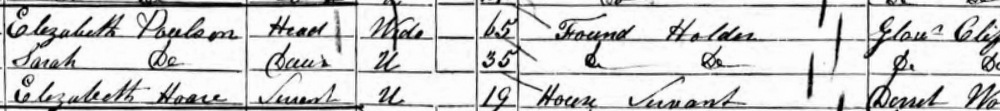 Elizabeth Poulson Head Wido 65 Found Holder Glous Clif
Sarah Do Daur U 35 Do Do Do Do
Elizabeth Hoare Servant U 19 House Servant Dorset W